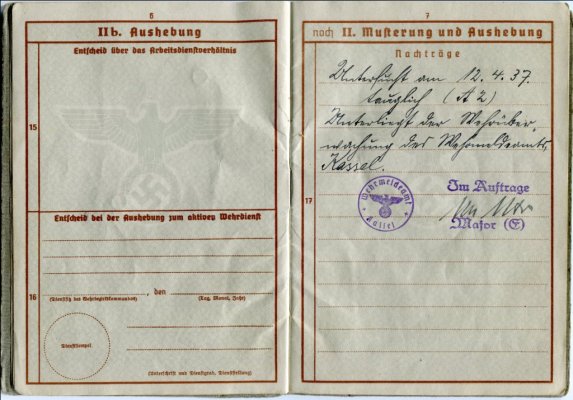 6
IIb. Aushebung
Entscheid über das Arbeitsdienstverhältnis
15
Entscheid bei der Aushebung zum aktiven Wehrdienst
16
, den
(Dienstsitz des Wehrbezirkskommandos) (Tag, Monat, Jahr)
Dienststempel
(Unterschrift und Dienstgrad, Dienststellung)
7
noch II. Musterung und Aushebung
Nachträge
Untersucht am 12.4.37.
tauglich (A 2)
Unterliegt der Wehrüber-
wachung des Wehrmeldeamts
Kassel.
17
Wehrmeldeamt
Kassel
Im Auftrage
Major (E)